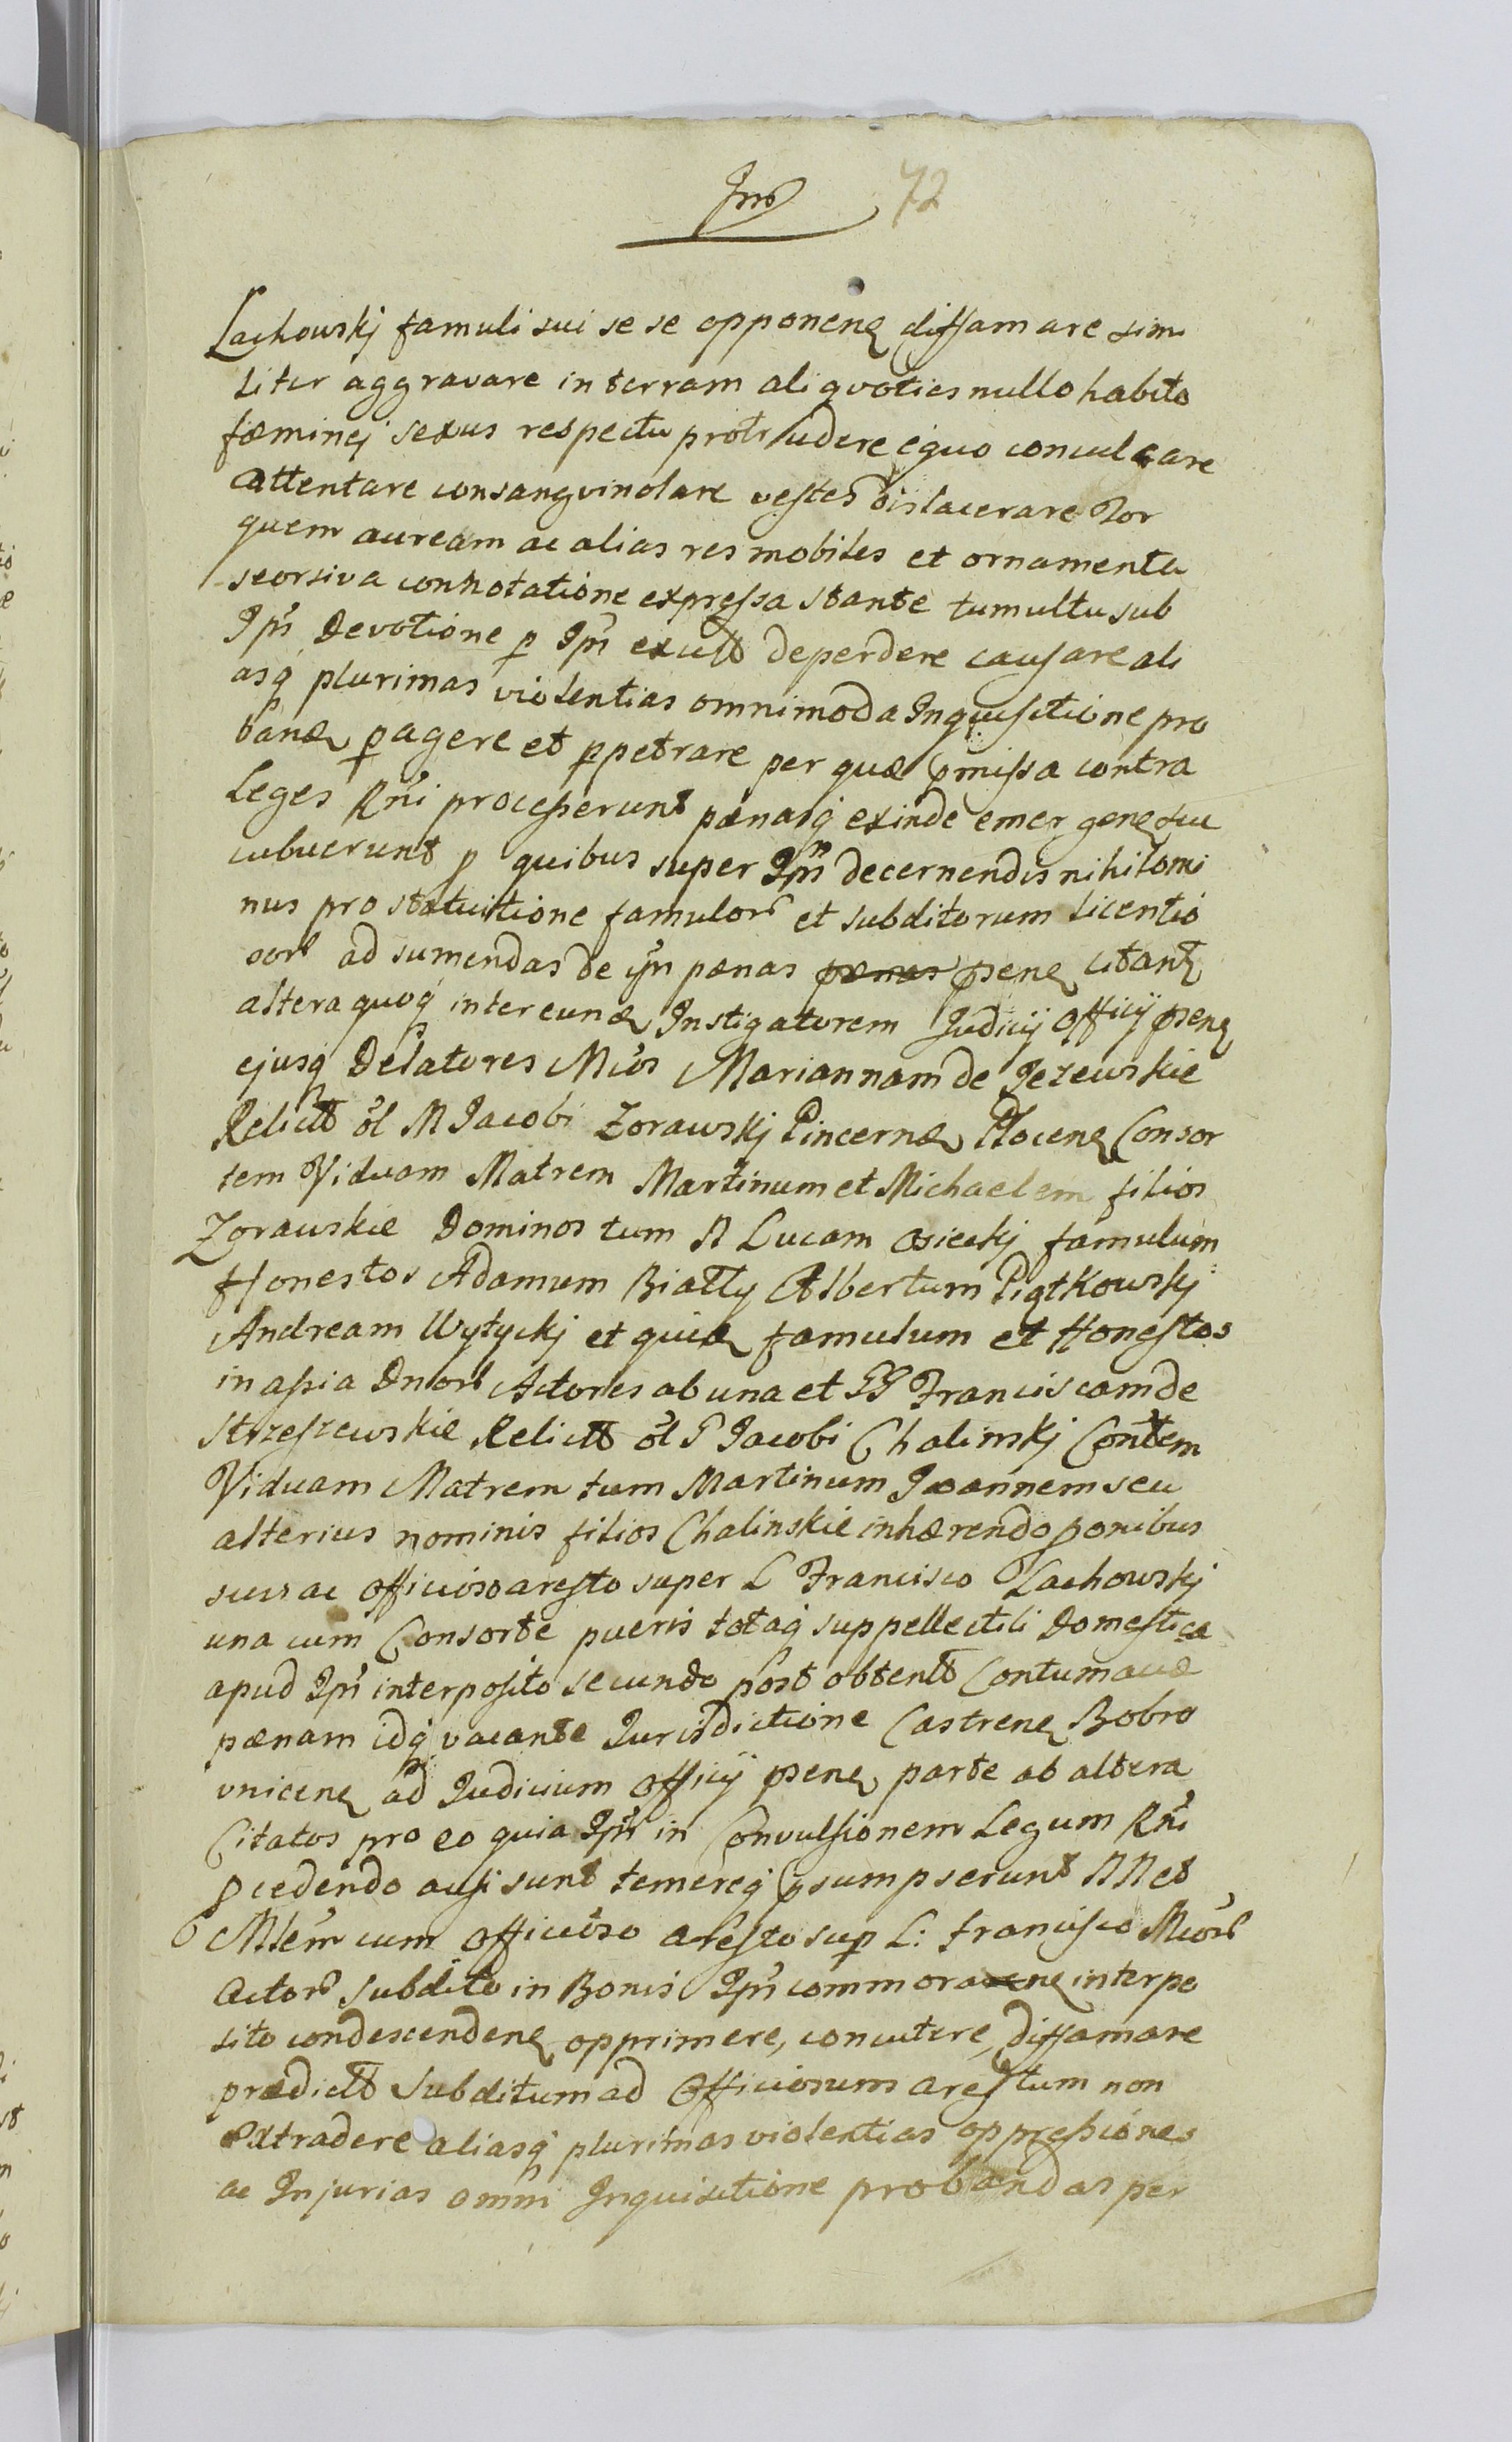 72
Lachowskj famuli sui se se opponenȩ diffamare simi
liter aggravare in terram aliqvoties nullo habito
fæminej sexus respectu protrudere equo conculcare
attentare consangvinolare vestes dislacerare Tor
quem auream ac alias res mobiles et ornamenta
seorsiva connotatione expressa stante tumultu sub
Ipm̃ Devotione p Ipm̃ excuss deperdere causare ali
asq̃ plurimas violentias omnimoda Inquisitione pro
banȩ pagere et ppetrare per quæ pmissa contra
Leges Rni processerunt pænasq̃ exinde emergenȩ suc
cubuerunt p quibus super Ipm̃ decernendis nihilomi
nus pro statuitione famulor̃ et subditorum licentio
sor̃ ad sumendas de ipm̃ pænas pænas psenȩ citanȩ
altera quoq̃ intereunȩ Instigatorem Judicij Officij psenȩ
ejusq̃ Delatores Mcos Mariannam de Jezewskie
Relict ol M Jacobi Zorawskj Pincernȩ Plocenȩ Consor
tem Viduam Matrem Martinum et Michaelem filios
Zorawskie Dominos tum N Lucam Osieckj famulum
Honestos Adamum Biały Albertum Piątkowskj
Andream Wytyckj et quiȩ famulum et Honestos
in assia Dnor̃ Actores ab una et GG Franciscam de
Strzeszewskie Relict ol G Jacobi Chalinskj Contem
Viduam Matrem tum Martinum Joannem seu
alterius nominis filios Chalinskie inhærendo ponibus
suis ac officioso aresto super L Francisco Lachowskj
una cum Consorte pueris totaq̃ suppellectili Domestica
apud Ipm̃ interposito secundo post obtent Contumaciæ
pænam idq̃ vacante Jurisdictione Castrenȩ Bobro
vnicenȩ ad Judicium Officij psenȩ parte ab altera
Citatos pro eo quia Ipm̃ in Convulsionem Legum Rni
pcedendo ausi sunt temereq̃ psumpserunt NN et
Mlem̃ cum officioso aresto sup L: Francisco Mcor̃
Actor̃ subdito in Bonis Ipm̃ commoranȩ interpo
sito condescendenȩ opprimere, concutere, diffamare
prædict Subditum ad Officiosum arestum non
extradere aliasq̃ plurimas violentias oppressiones
ac Injurias omni Inquisitione probandas per